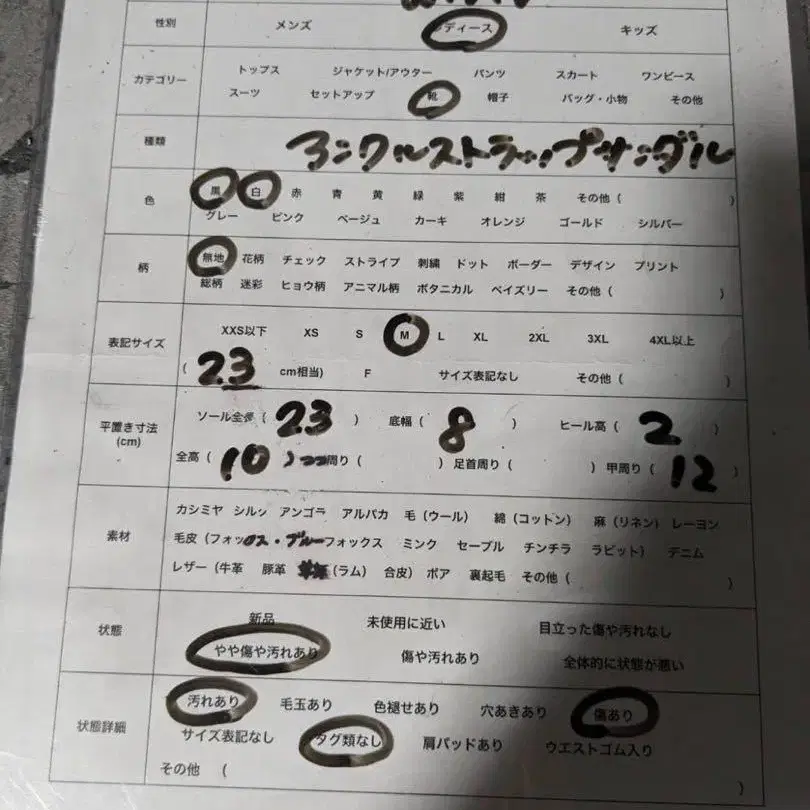 性別 メンズ レディース キッズ
カテゴリー トップス ジャケット/アウター パンツ スカート ワンピース
スーツ セットアップ 靴 帽子 バッグ・小物 その他
種類 アンクルストラップサンダル
色 黒 白 赤 青 黄 緑 紫 紺 茶 その他 ( )
グレー ピンク ベージュ カーキ オレンジ ゴールド シルバー
柄 無地 花柄 チェック ストライプ 刺繍 ドット ボーダー デザイン プリント
総柄 迷彩 ヒョウ柄 アニマル柄 ボタニカル ペイズリー その他 ( )
表記サイズ XXS以下 XS S M L XL 2XL 3XL 4XL以上
( 23 cm相当) F サイズ表記なし その他 ( )
平置き寸法 (cm) ソール全長 ( 23 ) 底幅 ( 8 ) ヒール高 ( 2 )
全高 ( 10 ) つつ周り ( ) 足首周り ( ) 甲周り ( 12 )
素材 カシミヤ シルク アンゴラ アルパカ 毛 (ウール) 綿 (コットン) 麻 (リネン) レーヨン
毛皮 (フォックス・ブルーフォックス ミンク セーブル チンチラ ラビット) デニム
レザー (牛革 豚革 羊革 (ラム) 合皮) ボア 裏起毛 その他 ( )
状態 新品 未使用に近い 目立った傷や汚れなし
やや傷や汚れあり 傷や汚れあり 全体的に状態が悪い
状態詳細 汚れあり 毛玉あり 色褪せあり 穴あきあり 傷あり
サイズ表記なし タグ類なし 肩パッドあり ウエストゴム入り
その他 ( )